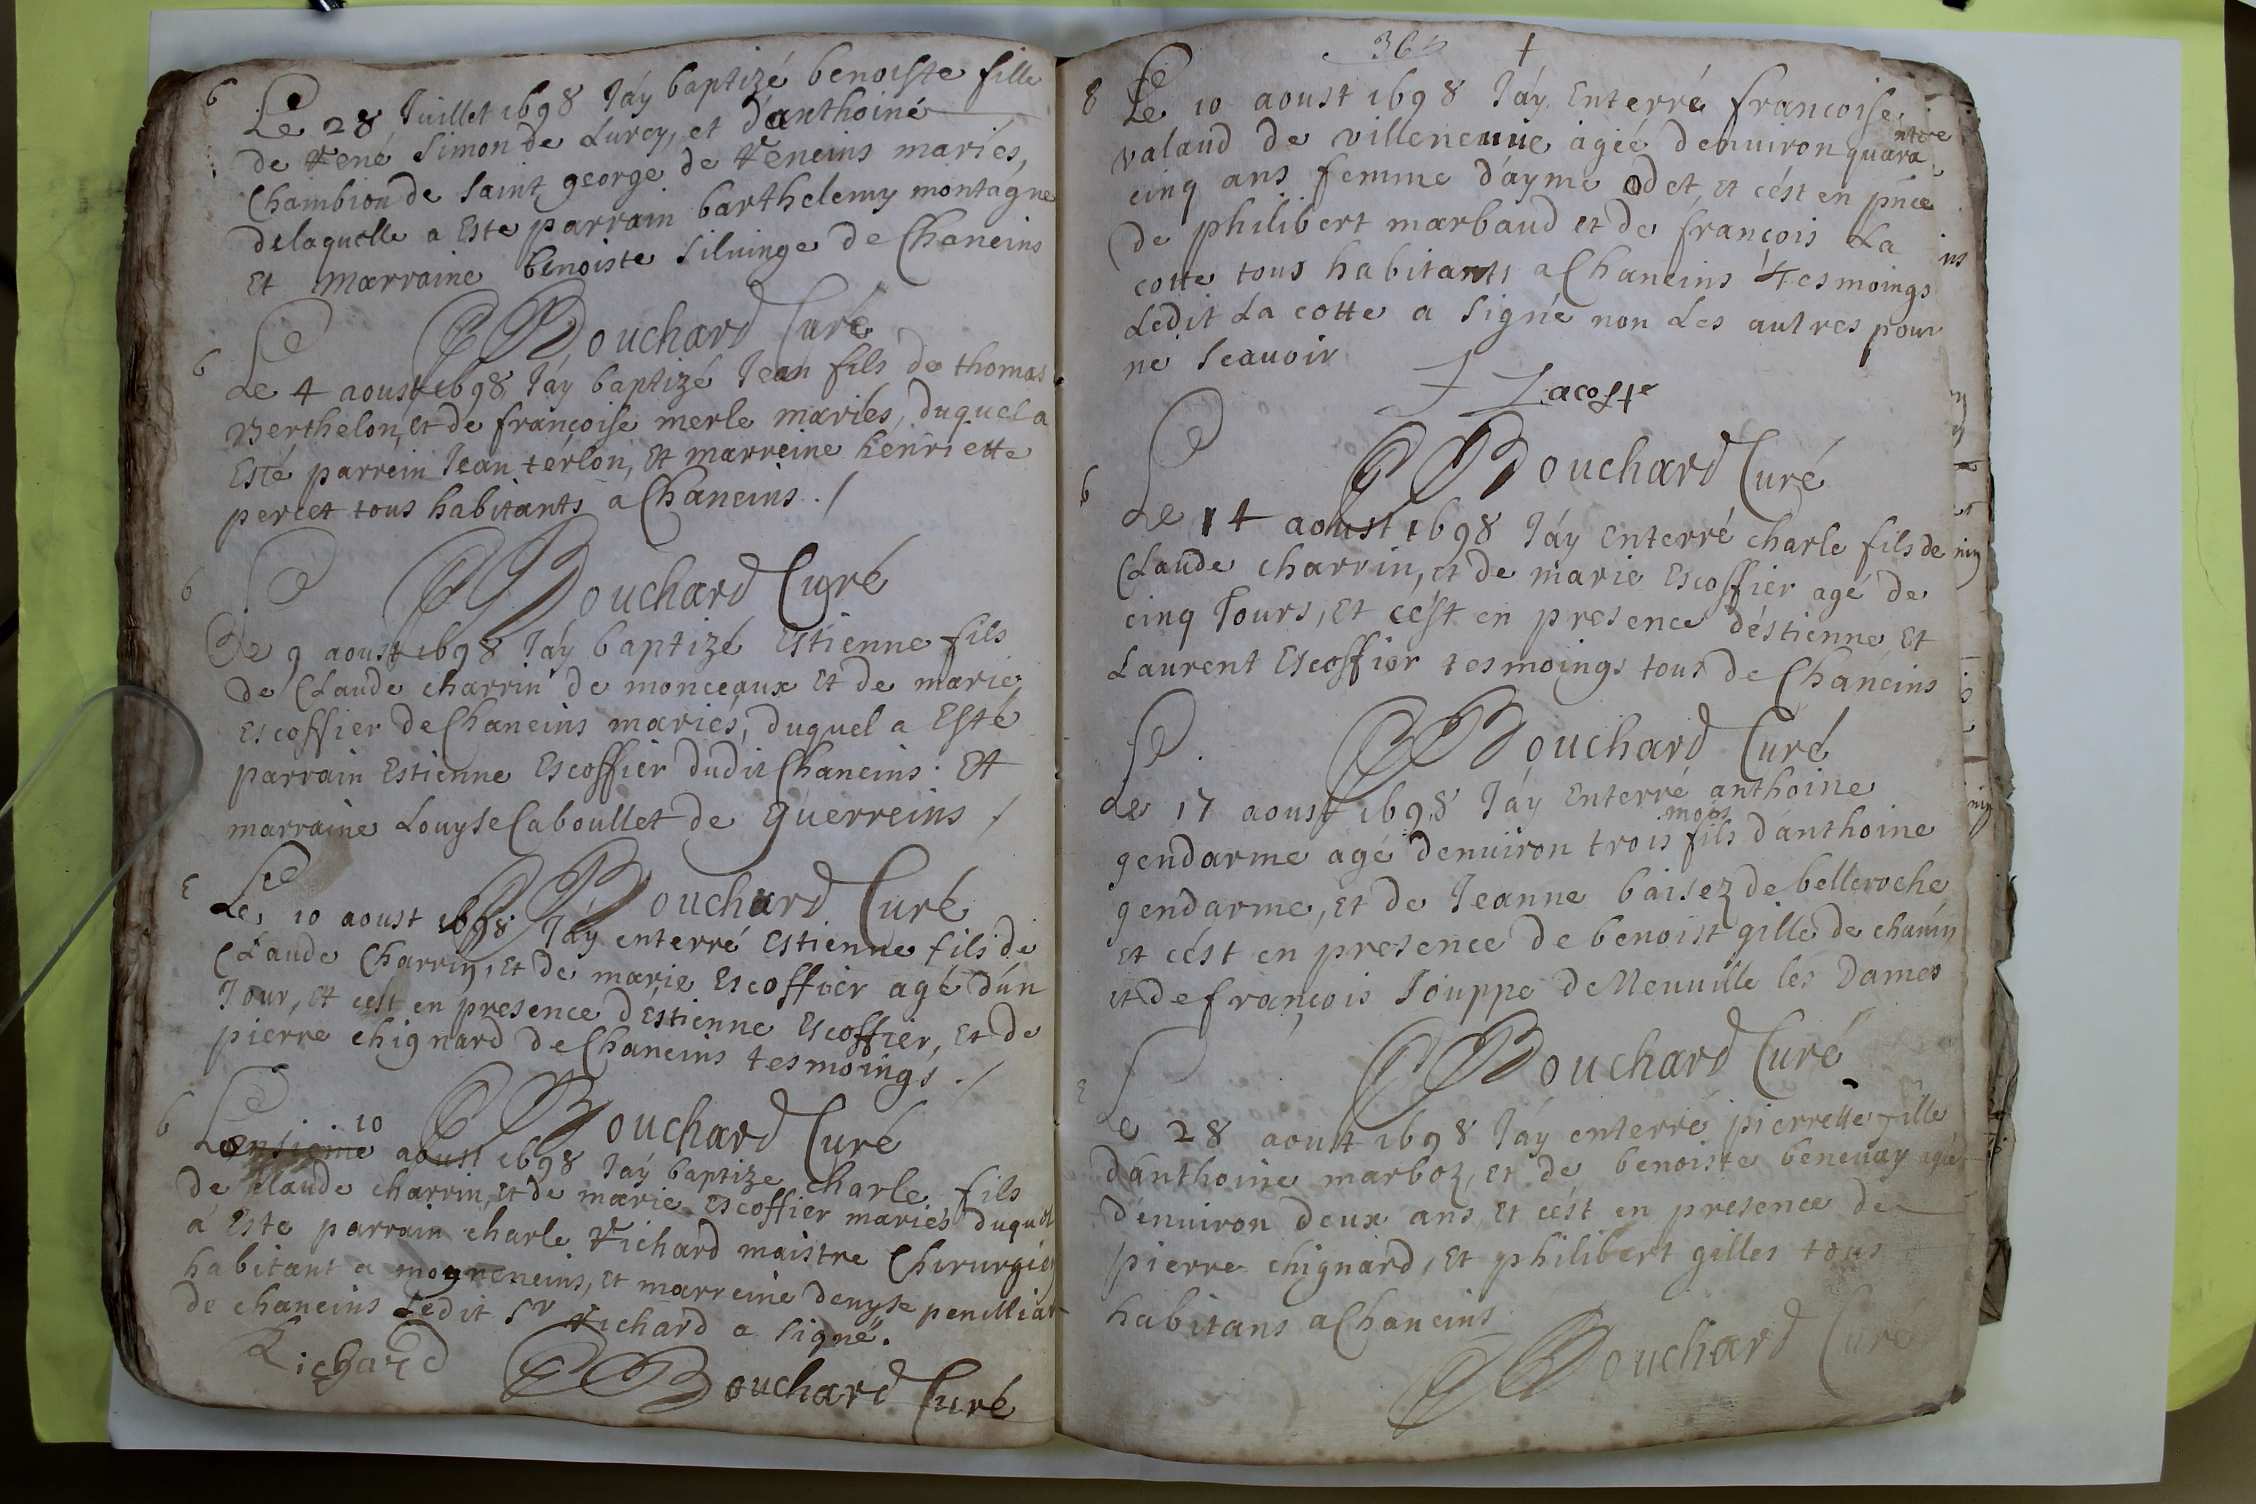 b
Le 28 Juillet 1698 Jáy baptizé benoiste fille
de René Simon de Lurcy, et d'anthoine
Chambion de Saint george de Reneins mariés,
delaquelle a Este parrain barthelemy montagne
Et marraine benoiste Siluinge de Chaneins
Bouchard Curé
b
Le 4 aoust 1698 Jáy baptizé Jean fils de thomas
Berthelon, et de françoise merle mariés, duquel a
Esté parrein Jean terlon, Et marreine henriette
percet tous habitants a Chaneins ./
Bouchard Curé
b
Le 9 aoust 1698 Jáy baptizé Estienne fils
de Claude charrin de monceaux Et de marie
Escoffier de Chaneins mariés, duquel a Esté
parrain Estienne Escoffier dudit Chaneins. Et
marraine Louyse Caboullet de guerreins /
Bouchard Curé
E
Le 10 aoust 1698 Jáy enterré Estienne fils de
Claude Charrin, Et de marie Escoffier agé d'un
Jour, Et cést en presence d'Estienne Escoffier, Et de
pierre chignard de Chaneins tesmoings ./
Bouchard Curé
b
10
Le onsieme aoust 1698 Jaÿ baptize charle fils
de claude charrin, et de marie Escoffier mariés duquel
a Este parrain charle Richard maistre Chirurgien
habitant a mogneneins, et marreine denyse penilliat
de chaneins Ledit Sr Richard a signé.
Richard
Bouchard Curé
365
8
Le 10 aoust 1698 Jáy Enterré francoise
valaud de villeneuue agée denuiron quarante
cinq ans femme d'ayme odet, et cést en pnce
de philibert marbaud et de françois La
cotte tous habitants a Chaneins tesmoings
Ledit La cotte a Signé non Les autres pour
ne Scauoir
Lacoste
Bouchard Curé
b
Le 14 aoust 1698 Jáy enterré charle fils de
Claude charrin, et de marie Escoffier agé de
cinq Jours, Et cést en presence d'éstienne Et
Laurent Escoffier tesmoings tous de Chaneins
Bouchard Curé
Le 17 aoust 1698 Jáy Enterré anthoine
mois
gendarme agé denuiron trois fils d'anthoine
gendarme, et de Jeanne baisez de belleroche
et cést en presence de benoist gille de chanin
et de françois Jouppe de Neuuille les Dames
Bouchard Curé
Le 28 aoust 1698 Jáy enterré pierrette fille
d'anthoine marboz, Et de benoiste beneuay agée
d'enuiron deux ans Et cést en presence de
pierre chignard, Et philibert gilles tous
habitans a Chaneins
Bouchard Curé